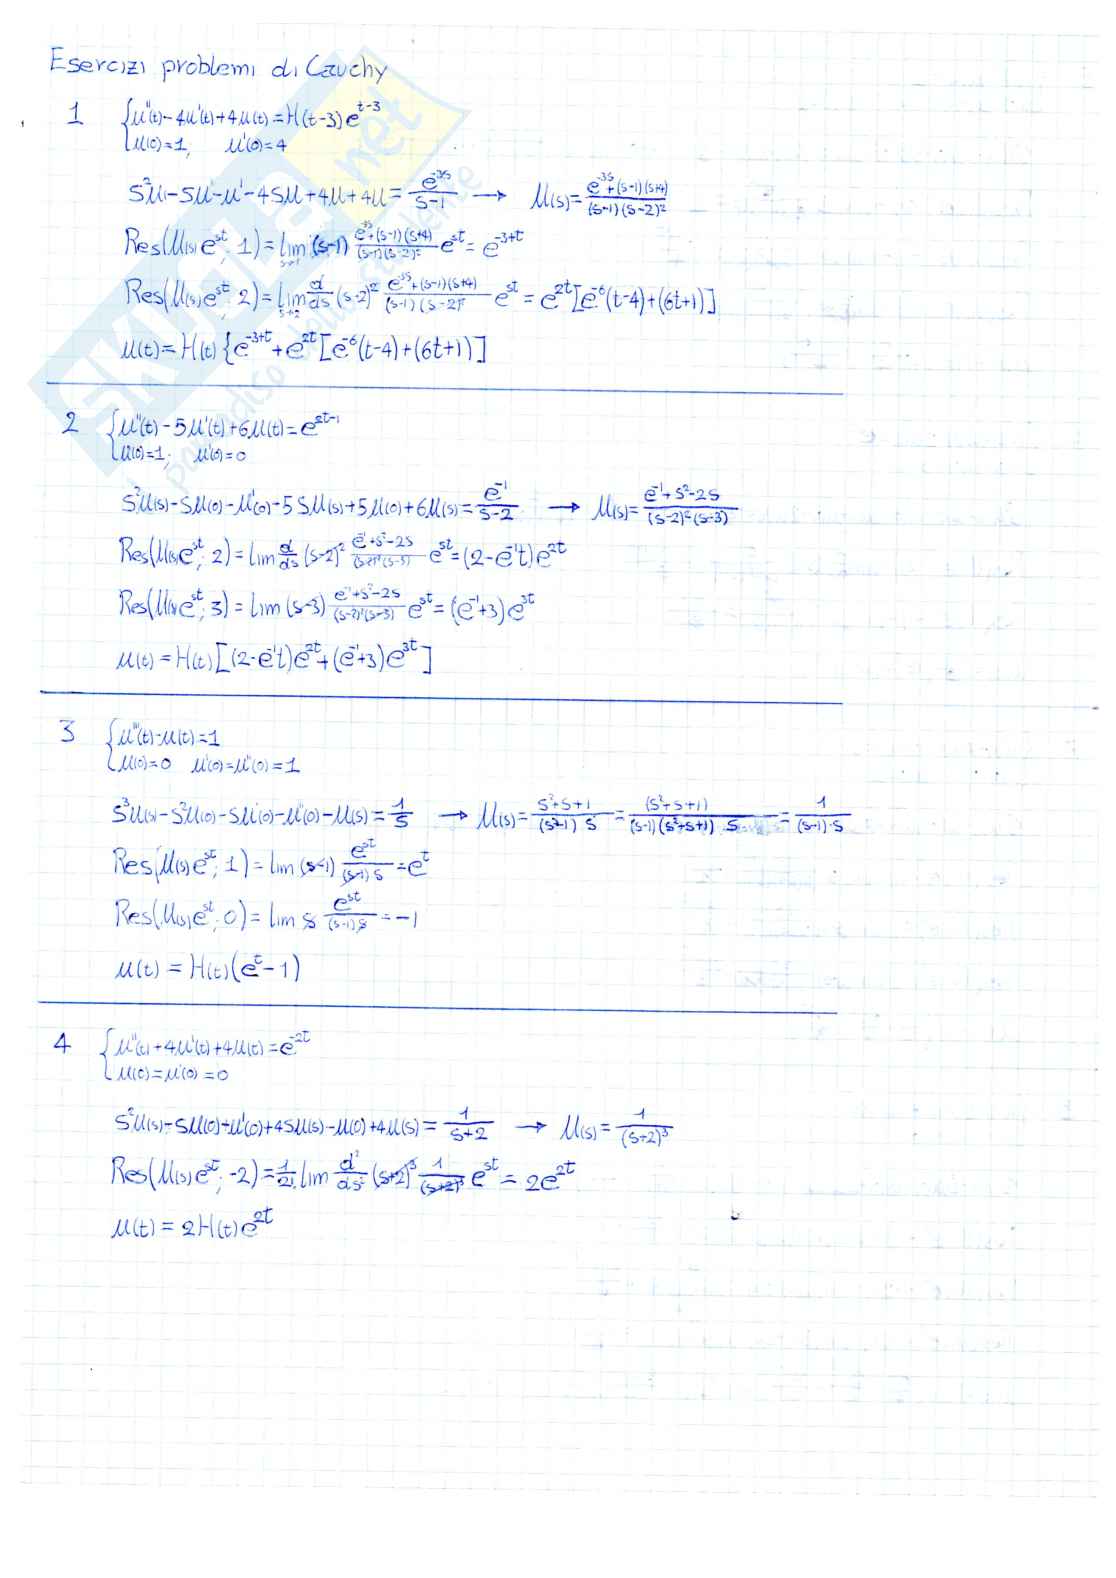 Esercizi problemi di Cauchy
1 {u''(t)-4u'(t)+4u(t)=H(t-3)e^{t-3}
u(0)=1, u'(0)=4
s²u-su-u'-4su+4u+4u=e^{-3s}/(s-1) → U(s)=(e^{-3s}+(s-1)(s+4))/((s-1)(s-2)²)
Res(U(s)e^{st}, 1)=lim_{s→1} (s-1) (e^{-3s}+(s-1)(s+4))/((s-1)(s-2)²) e^{st}=e^{-3+t}
Res(U(s)e^{st}, 2)=lim_{s→2} d/ds (s-2)² (e^{-3s}+(s-1)(s+4))/((s-1)(s-2)²) e^{st}=e^{2t}[e^{-6}(t-4)+(6t+1)]
u(t)=H(t){e^{-3+t}+e^{2t}[e^{-6}(t-4)+(6t+1)]
2 {u''(t)-5u'(t)+6u(t)=e^{2t-1}
u(0)=1, u'(0)=0
s²U(s)-su(0)-u'(0)-5sU(s)+5u(0)+6U(s)=e^{-1}/(s-2) → U(s)=(e^{-1}+s²-2s)/((s-2)²(s-3))
Res(U(s)e^{st}, 2)=lim d/ds (s-2)² (e^{-1}+s²-2s)/((s-2)²(s-3)) e^{st}=(2-e^{-1}t)e^{2t}
Res(U(s)e^{st}, 3)=lim (s-3) (e^{-1}+s²-2s)/((s-2)²(s-3)) e^{st}=(e^{-1}+3)e^{3t}
u(t)=H(t)[(2-e^{-1}t)e^{2t}+(e^{-1}+3)e^{3t}]
3 {u'''(t)-u(t)=1
u(0)=0 u'(0)=u''(0)=1
s³U(s)-s²u(0)-su'(0)-u''(0)-U(s)=1/s → U(s)=(s²+s+1)/((s³-1) s)=(s²+s+1)/((s-1)(s²+s+1) s)=1/((s-1)·s)
Res(U(s)e^{st}, 1)=lim (s-1) e^{st}/((s-1)s)=e^t
Res(U(s)e^{st}, 0)=lim s e^{st}/((s-1)s)=-1
u(t)=H(t)(e^t-1)
4 {u''(t)+4u'(t)+4u(t)=e^{-2t}
u(0)=u'(0)=0
s²U(s)-su(0)+u'(0)+4sU(s)-u(0)+4U(s)=1/(s+2) → U(s)=1/(s+2)³
Res(U(s)e^{st}, -2)=1/2! lim d²/ds² (s+2)³ 1/(s+2)³ e^{st}=2e^{2t}
u(t)=2H(t)e^{2t}